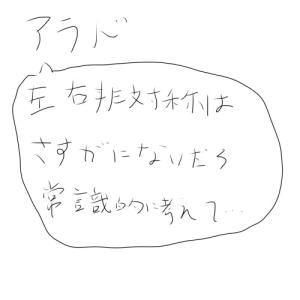 アラド
左右非対称は
さすがにないだろ
常識的に考えて…